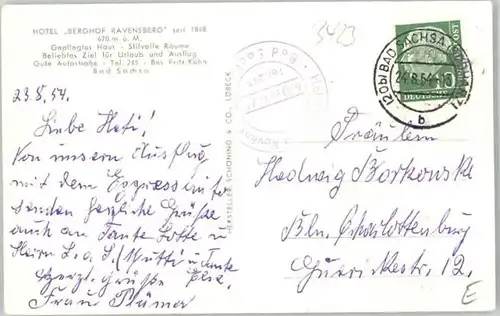 HOTEL „BERGHOF RAVENSBERG" seit 1868
670 m ü. M.
Gepflegtes Haus - Stilvolle Räume
Beliebtes Ziel für Urlaub und Ausflug
Gute Autostraße - Tel. 245 - Bes. Fritz Kühn
Bad Sachsa
23.8.54.
Liebe Hete!
Von unserm Ausflug
mit dem Express
senden herzliche Grüße
auch an Tante Lotte u
Mutti u Tante
Herzl. Grüße
Frau
HERSTELLER SCHÖNING & CO., LÜBECK
3423
(20b) BAD SACHSA (SÜDHARZ)
24.8.54
b
DEUTSCHE
POST
10
Fräulein
Hedwig Borkowski
Bln. Charlottenburg
Guerickestr. 12.
E